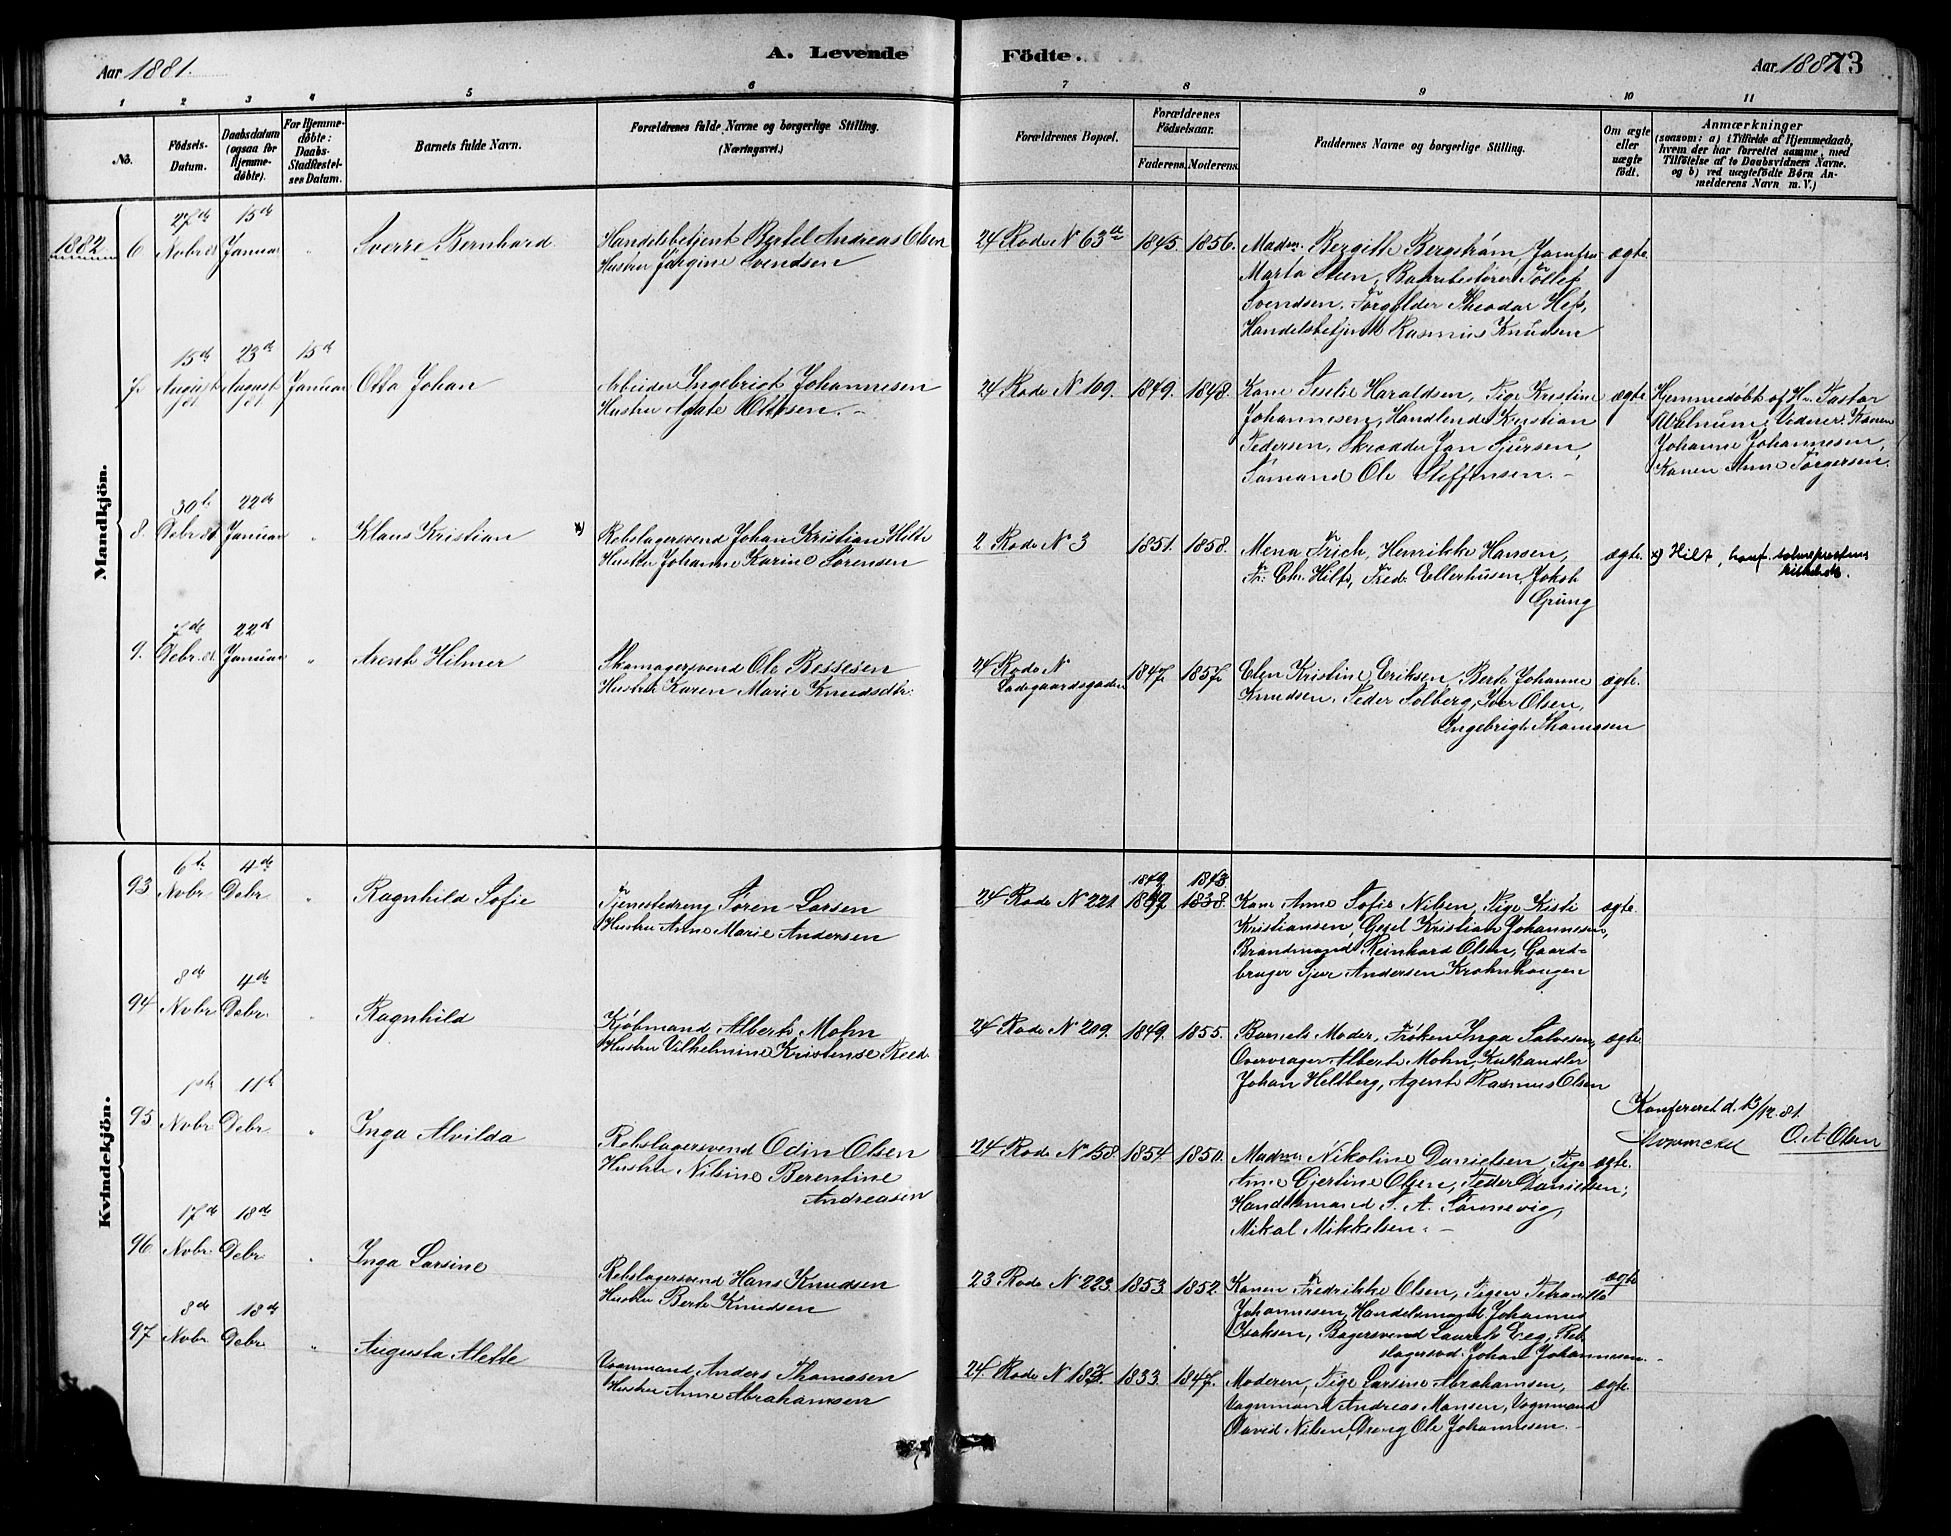 Aar 1881. A. Levende Födte. Aar 1881. 73
1 2 3 4 5 6 7 8 9 10 11
No.
Födsels-Datum.
Daabsdatum (ogsaa for Hjemme-döbte).
For Hjemme-döbte: Daabs-Stadfæstel-ses Datum.
Barnets fulde Navn.
Forældrenes fulde Navne og borgerlige Stilling. (Næringsvei.)
Forældrenes Bopæl.
Forældrenes Födselsaar.
Faderens. Moderens.
Faddernes Navne og borgerlige Stilling.
Om ægte eller uægte födt.
Anmærkninger
(saasom: a) i Tilfælde af Hjemmedaab, hvem der har forrettet samme, med Tilföielse af to Daabsvidners Navne. og b) ved uægtefödte Börn An-melderens Navn m. V.)
Mandkjön.
1882
27de 15de
6 Novbr 81 Januar " Sverre Bernhard
Handelsbetjent Bertel Andreas Olsen
Hustru Jørgine Svendsen
24 Rode N 63a 1845. 1856.
Madm. Bergith Bergstrøm, Jomfru
Marta Steen, Tollef
Svendsen, Theodor Hess,
Handelsbetjent Rasmus Knudsen
ægte.
15de 23de 15de
7. August 81 August 81 Januar Otto Johan
Arbeider Ingebrigt Johannesen
Hustru Agate Ottesen. -
24 Rode N 109. 1849. 1848.
Kone Haraldsen, Pige Kristine
Johannesen, Handlende Kristian
Pedersen, Skrædder Jan Sjursen,
Sømand Ole Steffensen. -
ægte
Hjemmedøbt af Hr. Pastor
Vidner: Konen
Johanne Johannesen,
Konen Anne Torgersen.
30te 22de
8. Debr 81 Januar " Klaus Kristian x)
Rebslagersvend Johan Kristian Hilt
Hustru Johanne Karine Sørensen
2 Rode N 3 1851. 1858.
Mena Frich, Henrikke Hansen,
Fr. Chr. Hilt, Fred. Ellerhusen, Jakob
Grung
ægte.
x) Hilt, konf.
7de 22de
9. Debr. 81 Januar " Arent Hilmer
Skomagersvend Ole Bessesen
Hustru Karen Marie Knudsdtr.
24 Rode N
Ladegaardsgaden 1847 1857
Elen Kristine Eriksen, Berte Johanne
Knudsen, Peder Solberg, Iver Olsen,
Ingebrigt Thomassen
ægte.
Kvindekjön.
6te 4de
93 Novbr Debr " Ragnhild Sofie
Tjenestedreng Søren Larsen
Hustru Anne Marie Andersen
1849 1843
24 Rode N 221. 1847 1838.
Kone Anne Sofie Nilsen, Pige Kisti
Kristiansen, Gesel Kristian Johannesen,
Brandmand Reinhard Olsen, Gaard-
bruger Sjur Andersen Krohnhaugen
ægte.
8de 4de
94 Novbr Debr. " Ragnhild
Kjøbmand Albert Mohn
Hustru Vilhelmine Kristense Reed
24 Rode N 209. 1849. 1855.
Barnets Moder, Frøken Inga Salvesen,
Overvrager Albert Mohn, Kulhandler
Johan Heltberg, Agent Rasmus Olsen
ægte.
1ste 11te
95 Novbr Debr. " Inga Alvilda
Rebslagersvend Odin Olsen
Hustru Nilsine Berentine
Andreasen
24 Rode N 158. 1854. 1850.
Madm. Nikoline Danielsen, Pige
Anne Gjertine Olsen, Peder Danielsen,
Handelsmand S. A. Tønnevig,
Mikal Mikkelsen. -
ægte.
Konfereret d. 13/12. 81.
O. A. Olsen
17de 18de
96 Novbr. Debr. " Inga Larsine
Rebslagersvend Hans Knudsen
Hustru Berte Knudsen
23 Rode N 223. 1853. 1852.
Konen Fredrikke Olsen, Pigen
Johannesen, Handelsmand Johannes
Isaksen, Bagersvend Laurits Eeg, Reb-
slagersvd. Johan Johannesen.
ægte
8de 18de
97 Novbr. Debr. " Augusta Alette
Vognmand Anders Thomasen
Hustru Anne Abrahamsen
24. Rode N 1833. 1847.
Moderen, Pige Larsine Abrahamsen,
Vognmand Andreas Monsen, Vognmand
David Nilsen, Dreng Ole Johannesen.
ægte.